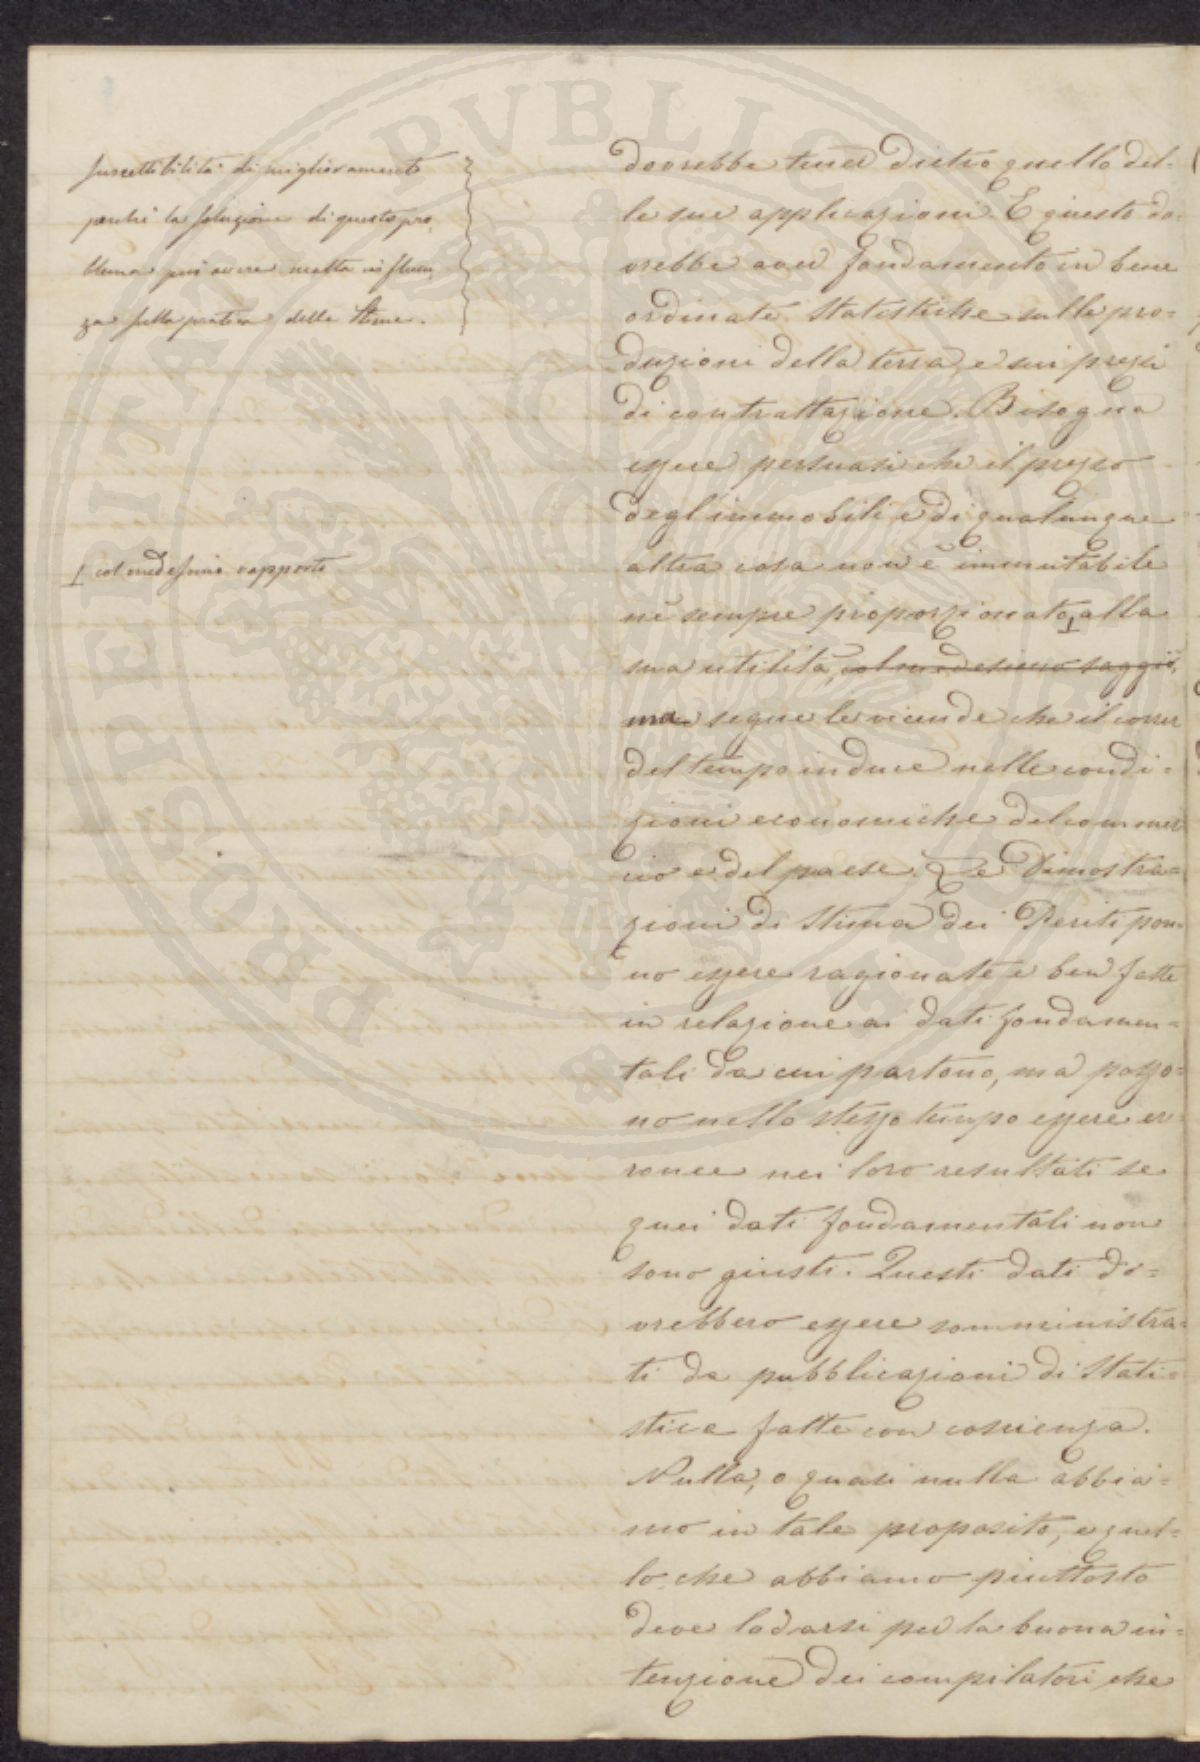 suscettibilità di miglioramento
perché la soluzione di questo pro-
blema può avere molta influen-
za sulla pratica delle Stime.
⊥ col medesimo rapporto
dovrebbe tener dietro quello del-
le sue applicazioni. E questo do-
vrebbe aver fondamento in bene
ordinate Statistiche sulle pro=
duzioni della terra, e sui prezzi
di contrattazione. Bisogna
essere persuasi che il prezzo
degl'immobili, e di qualunque
altra cosa non è immutabile
né sempre proporzionato ⊥ alla
sua utilità, col medesimo saggio,
ma segue le vicende che il correr
del tempo induce nelle condi=
zioni economiche del commer
cio e del paese. Le Dimostra=
zioni di Stima dei Periti pon-
no essere ragionate e ben fatte
in relazione ai dati fondamen=
tali da cui partono, ma posso=
no nello stesso tempo essere er
ronee nei loro resultati se
quei dati fondamentali non
sono giusti. Questi dati do=
vrebbero essere somministra=
ti da pubblicazioni di Stati=
stica fatte con coscienza.
Nulla, o quasi nulla abbia=
mo in tale proposito, e quel=
lo che abbiamo piuttosto
deve lodarsi per la buona in=
tenzione dei compilatori che
PROSPERITATI PUBLICAE AUGENDAE